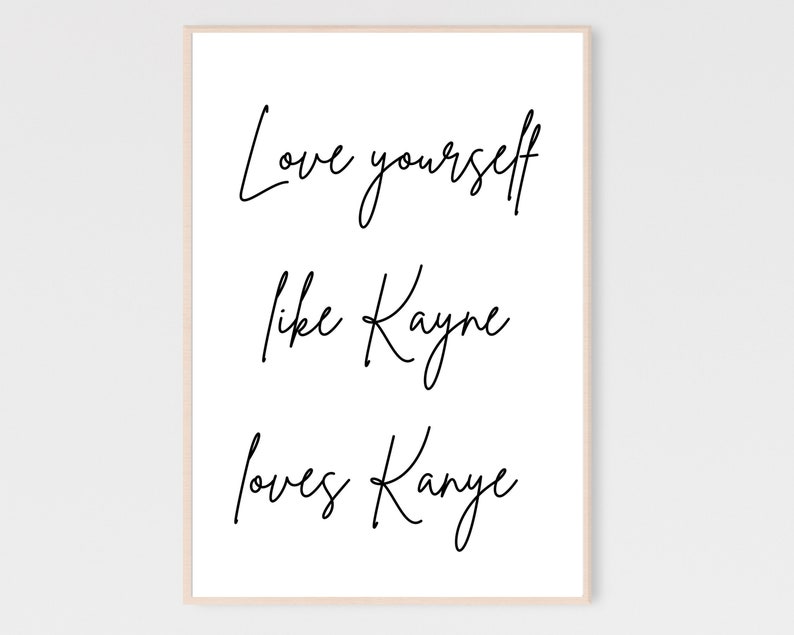 Love yourself
like Kayne
loves Kanye